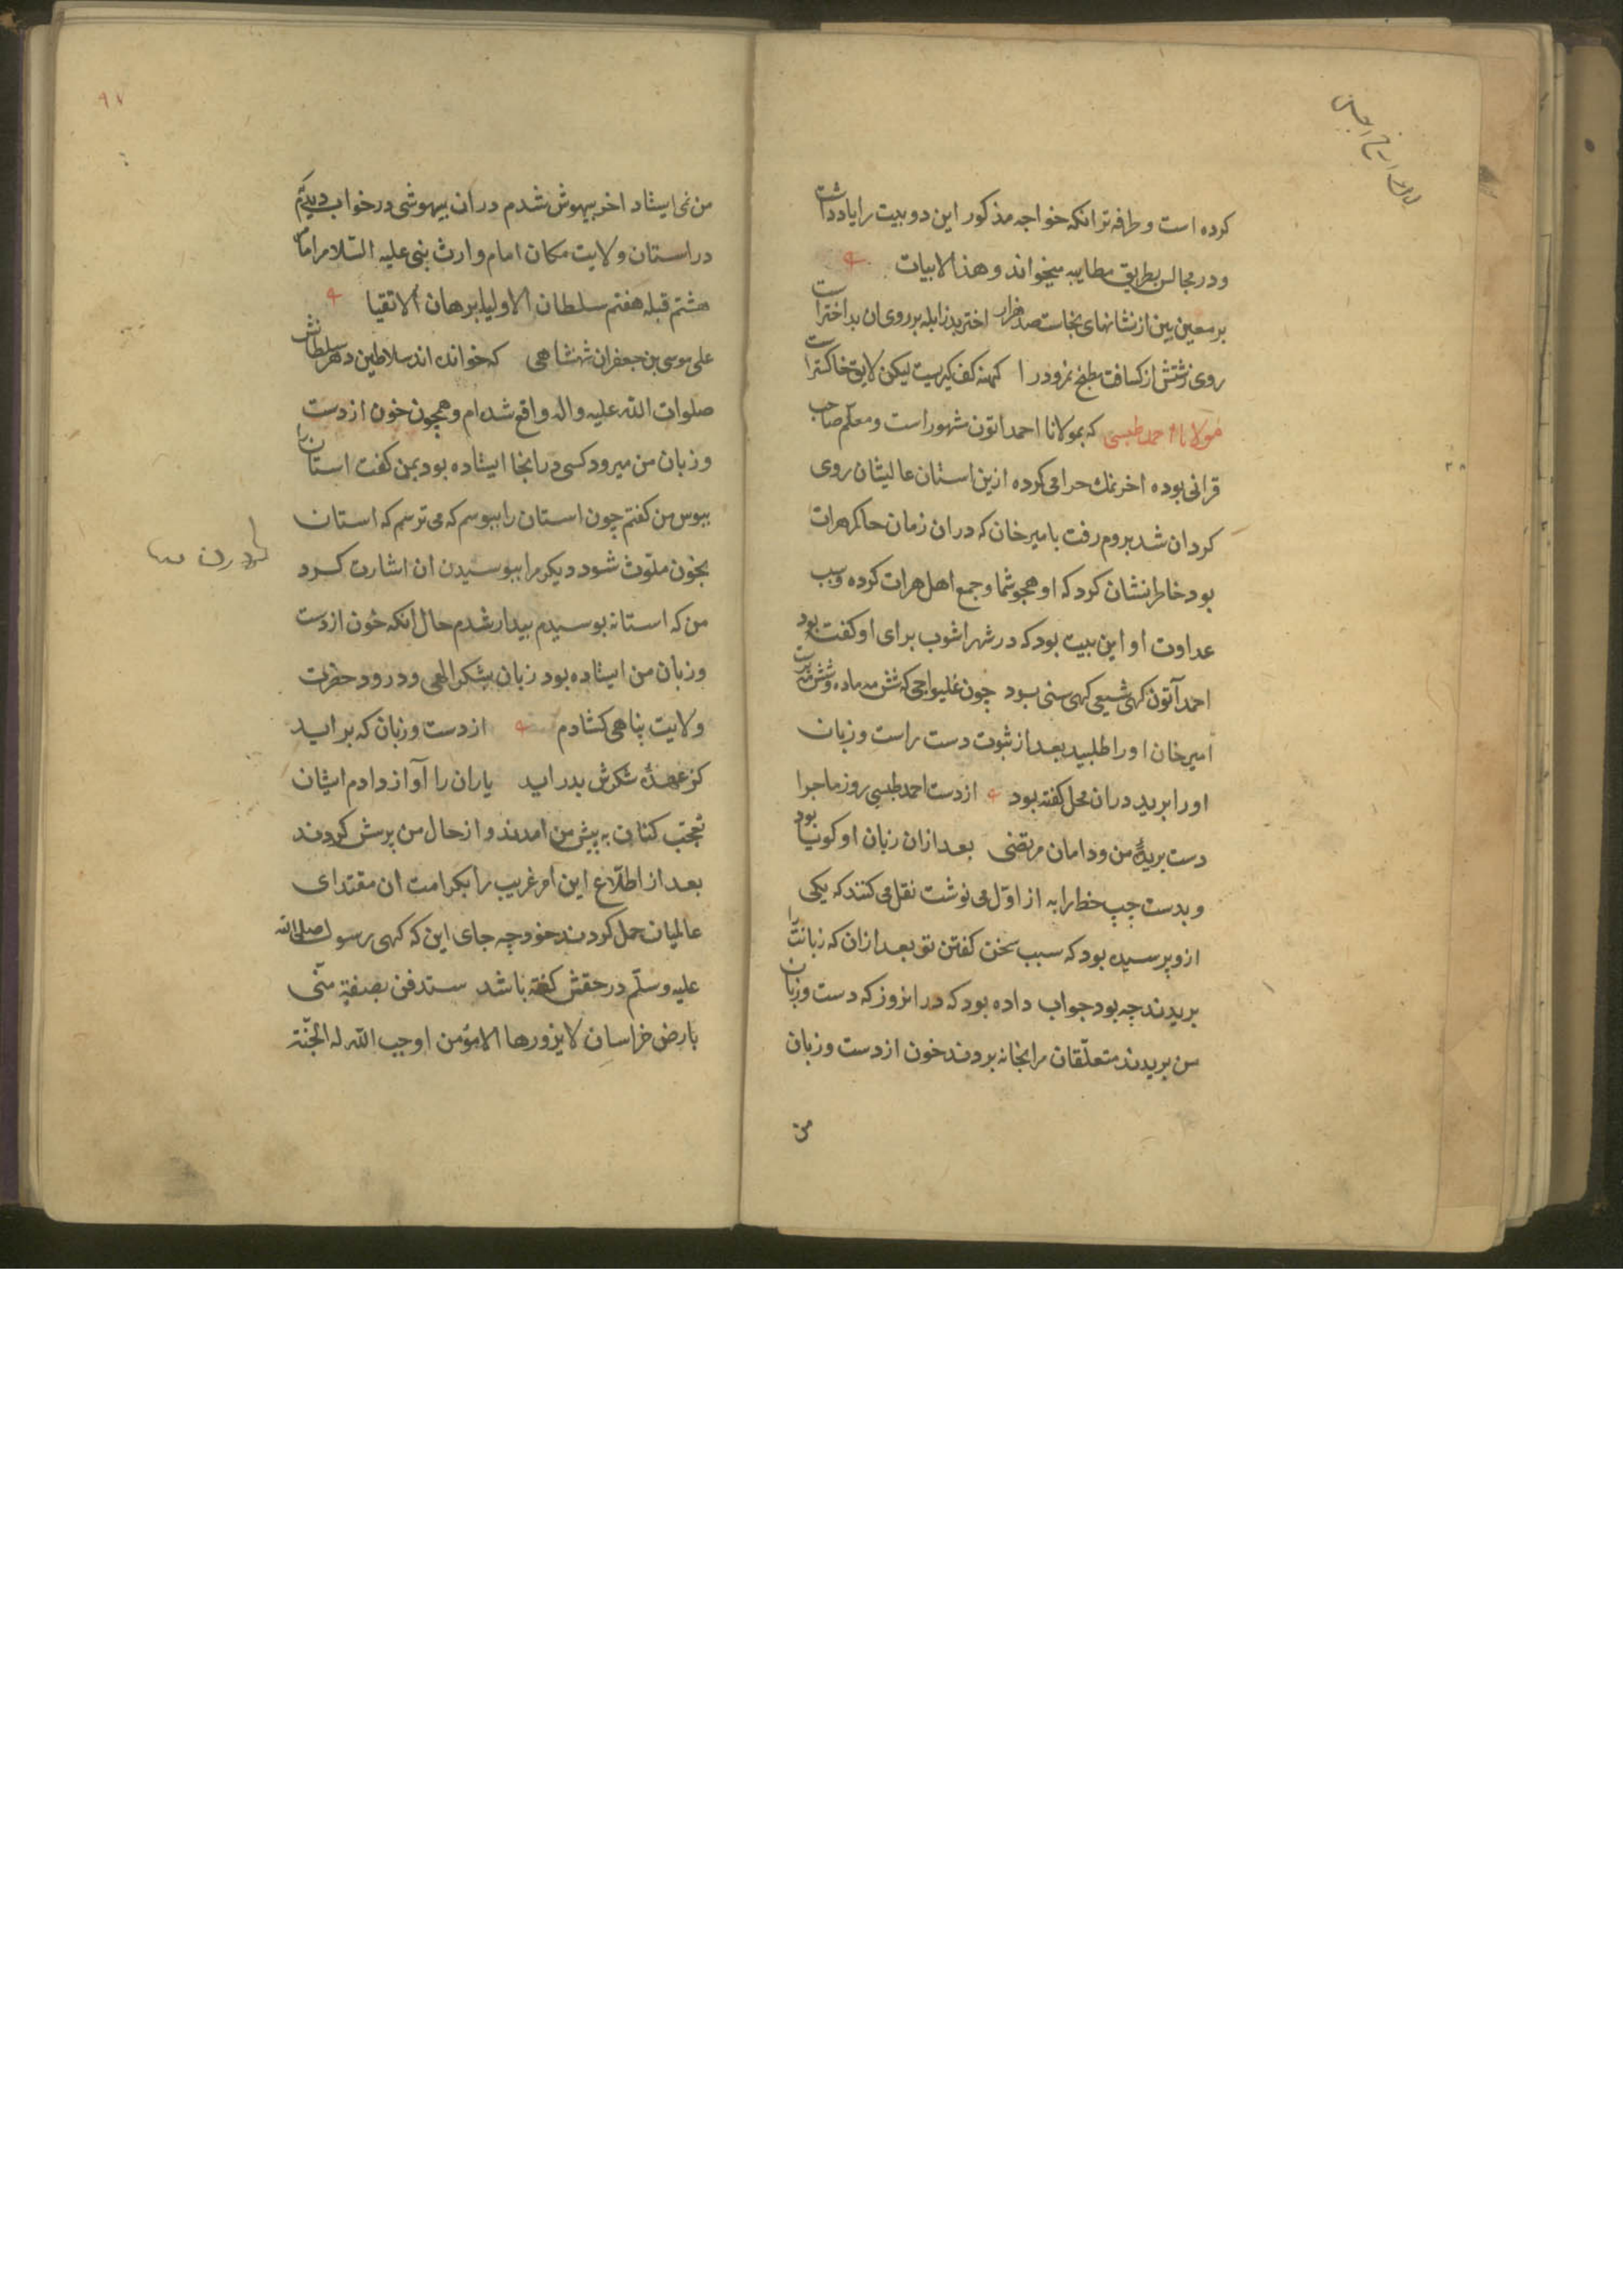 کرده است و طرفه‌تر انکه خواجه مذکور این دو بیت را یاد داشت
و در مجالس بطریق مطایبه میخواند و هذا الابیات
بر معین بین از نشانهای نجاست صد هزار اختر بد زابله بر روی ان بد اختر است
روی زشتش از کسافت مطبخ نمرود را کهنه کف کیریست لیکن لایق خاکستر است
مولانا احمد طبسی که بمولانا احمد اتون مشهور است و معلم صاحب
قرانی بوده اخر نمک حرامی کرده ازین استان عالیشان روی
کردان شد بروم رفت با میرخان که دران زمان حاکم هرات
بود خاطر نشان کرد که او هجو شما و جمع اهل هرات کرده و سبب
عداوت او این بیت بود که در شهر اشوب برای او کفته بود
احمد آتون کهی شیعی کهی سنی بود چون غلیواجی که شش مه ماده و شش مه نرست
امیرخان او را طلبید بعد از ثبوت دست راست و زبان
او را برید دران محل کفته بود از دست احمد طبسی روز ماجرا
دست بریدهٔ من و دامان مرتضی بعد ازان زبان او کویا بود
و بدست چپ خط را به از اوّل می نوشت نقل می کنند که یکی
ازو پرسیده بود که سبب سخن کفتن تو بعد ازان که زبانت را
بریدند چه بود جواب داده بود که در انروز که دست و زبان
من بریدند متعلّقان مرا بخانه بردند خون از دست و زبان
من
۹۷
من نمی ایستاد اخر بیهوش شدم دران بیهوشی در خواب دیدم که
در استان ولایت مکان امام وارث بنی علیه السّلام امام
هشتم قبله هفتم سلطان الاولیا برهان الاتقیا
علی موسی بن جعفر ان شهنشاهی که خوانده اند سلاطین دهر سلطانش
صلوات اللّه علیه و اله واقع شده ام و همچون خون از دست
و زبان من میرود کسی در انجا ایستاده بود بمن کفت استان را
ببوس من کفتم چون استان را ببوسم که می ترسم که استان
بخون ملوّث شود دیکر مرا ببوسیدن ان اشارت کرد
من که استانه بوسیدم بیدار شدم حال انکه خون از دست
و زبان من ایستاده بود زبان بشکر الهی و درود حضرت
ولایت پناهی کشادم از دست و زبان که بر اید
کز عهدهٔ شکرش بدر اید یاران را آواز دادم ایشان
تعجّب کنان به پیش من امدند و از حال من پرسش کردند
بعد از اطّلاع این امر غریب را بکرامت ان مقتدای
عالمیان حمل کردند خود چه جای این که کهی رسول صلی اللّه
علیه و سلّم در حقش کفته باشد ستدفن بضعة منّی
بارض خراسان لا یزورها الا مؤمن اوجب اللّه له الجنّة